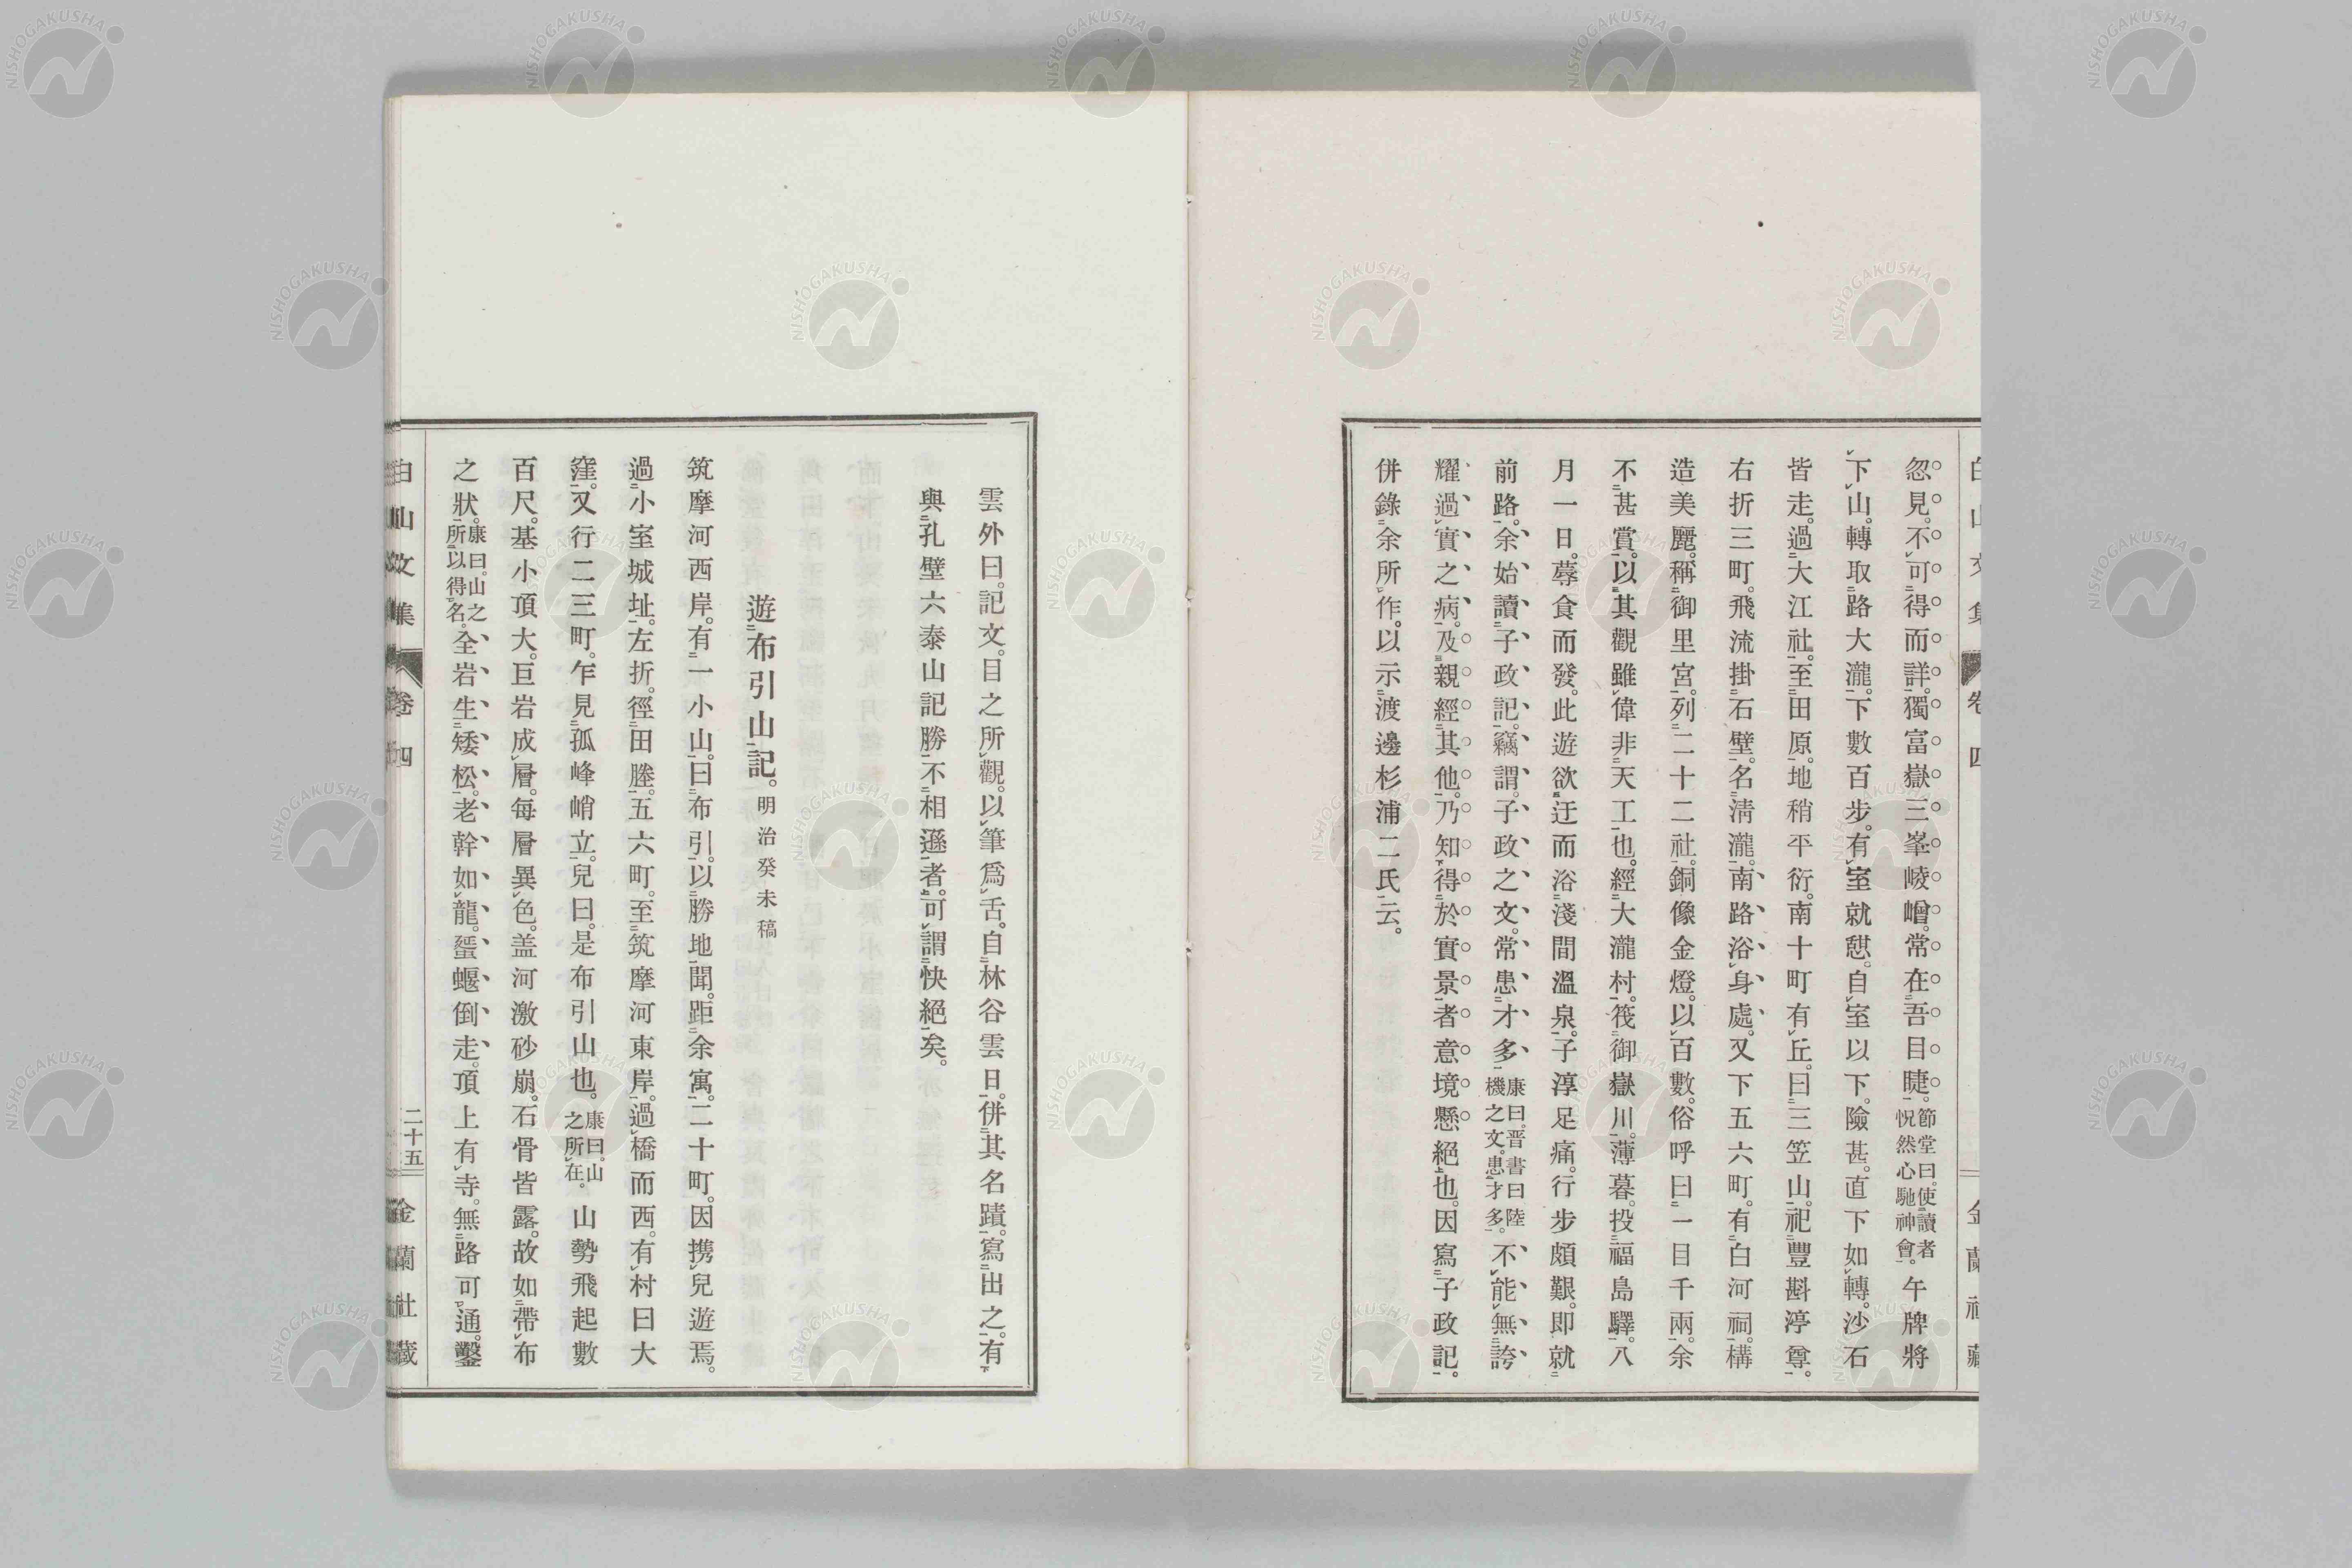 忽見。不可得而詳。獨富嶽三峯崚嶒。常在吾目睫。節堂曰。使讀者怳然心馳神會。午牌將
下山。轉取路大瀧。下數百步。有室就憇。自室以下。險甚。直下如轉。沙石
皆走。過大江社。至田原。地稍平衍。南十町有丘。曰三笠山。祀豐斟渟尊。
右折三町。飛流掛石壁。名淸瀧。南路浴身處。又下五六町。有白河祠。構
造美麗。稱御里宮。列二十二社。銅像金燈。以百數。俗呼曰一目千兩。余
不甚賞。以其觀雖偉非天工也。經大瀧村。筏御嶽川。薄暮。投福島驛。八
月一日。蓐食而發。此遊欲迂而浴淺間溫泉。子淳足痛。行步頗艱。卽就
前路。余始讀子政記。竊謂。子政之文。常患才多康曰。晋書曰陸機之文。患才多。不能無誇
耀過實之病。及親經其他。乃知得於實景者意境懸絕也。因寫子政記。
併錄余所作。以示渡邊杉浦二氏云。
白山文集
卷四
金蘭社藏
雲外曰。記文。目之所觀。以筆爲舌。自林谷雲日。併其名蹟。寫出之。有
與孔壁六泰山記勝不相遜者。可謂快絕矣。
遊布引山記。明治癸未稿
筑摩河西岸。有一小山。曰布引。以勝地聞。距余寓。二十町。因携兒遊焉。
過小室城址。左折。徑田塍。五六町。至筑摩河東岸。過橋而西。有村曰大
窪。又行二三町。乍見孤峰峭立。兒曰。是布引山也。康曰。山之所在。山勢飛起數
百尺。基小頂大。巨岩成層。每層異色。盖河激砂崩。石骨皆露。故如帶布
之狀。康曰。山之所以得名。全岩生矮松。老幹如龍。蜑蝘倒走。頂上有寺。無路可通。鑿
白山文集
卷四
二十五
金蘭社藏
NISHOGAKUSHA